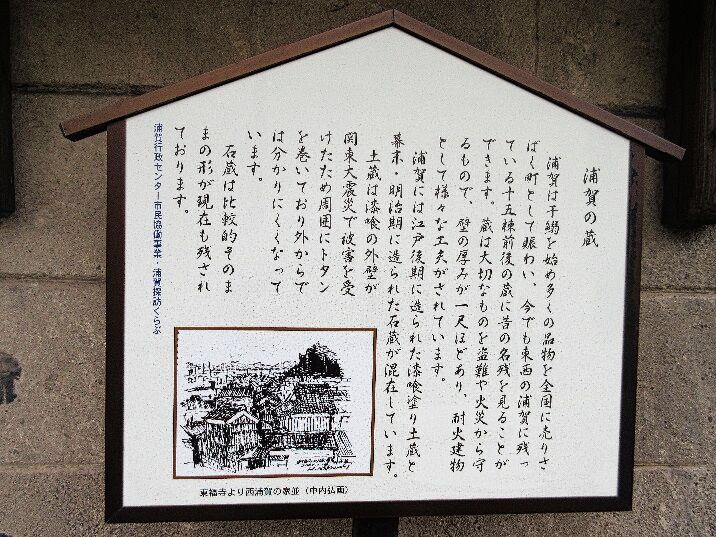 浦賀の蔵
浦賀は干鰯を始め多くの品物を全国に売りさ
ばく町として賑わい、今でも東西の浦賀に残っ
ている十五棟前後の蔵に昔の名残を見ることが
できます。蔵は大切なものを盗難や火災から守
るもので、壁の厚みが一尺ほどあり、耐火建物
として様々な工夫がされています。
浦賀には江戸後期に造られた漆喰塗り土蔵と
幕末・明治期に造られた石蔵が混在しています。
土蔵は漆喰の外壁が
関東大震災で被害を受
けたため周囲にトタン
を巻いており外からで
は分かりにくくなって
います。
石蔵は比較的そのま
まの形が現在も残され
ております。
浦賀行政センター市民協働事業・浦賀探訪くらぶ
東福寺より西浦賀の家並(中内弘画)